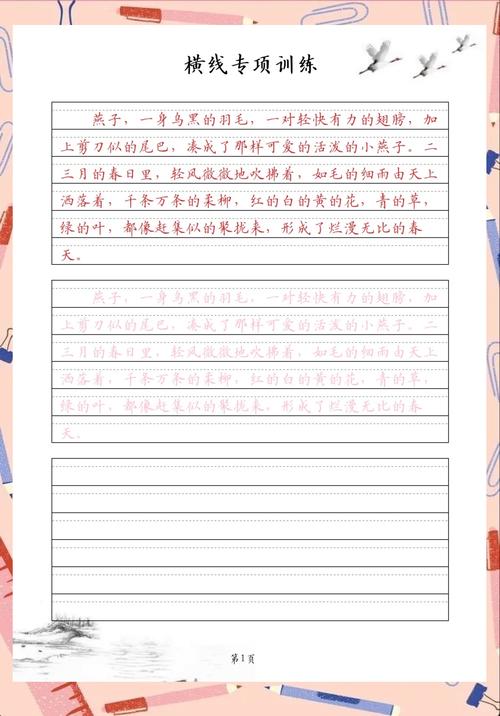 横线专项训练
燕子，一身乌黑的羽毛，一对轻快有力的翅膀，加
上剪刀似的尾巴，凑成了那样可爱的活泼的小燕子。二
三月的春日里，轻风微微地吹拂着，如毛的细雨由天上
洒落着，千条万条的柔柳，红的白的黄的花，青的草，
绿的叶，都像赶集似的聚拢来，形成了烂漫无比的春
天。
燕子，一身乌黑的羽毛，一对轻快有力的翅膀，加
上剪刀似的尾巴，凑成了那样可爱的活泼的小燕子。二
三月的春日里，轻风微微地吹拂着，如毛的细雨由天上
洒落着，千条万条的柔柳，红的白的黄的花，青的草，
绿的叶，都像赶集似的聚拢来，形成了烂漫无比的春
天。
第1页